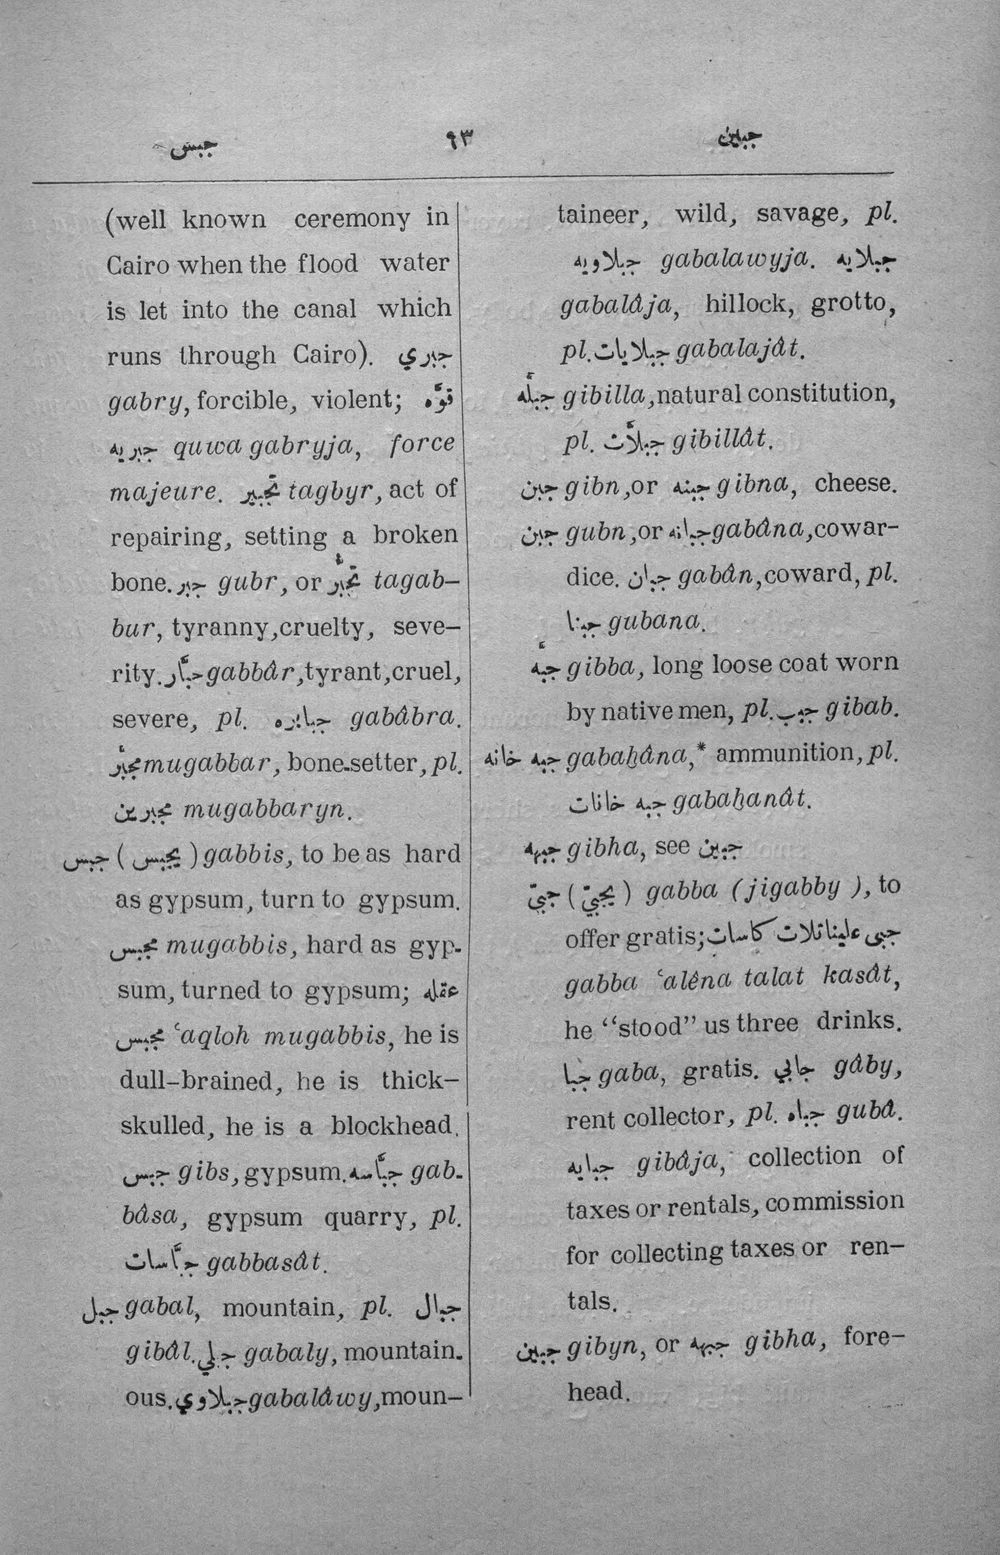 جبس ٩٣ جبين
(well known ceremony in
Cairo when the flood water
is let into the canal which
runs through Cairo). جبري
gabry, forcible, violent; قوّه
جبريه quwa gabryja, force
majeure. تجبير tagbyr, act of
repairing, setting a broken
bone. جبر gubr, or تجبُّر tagab-
bur, tyranny,cruelty, seve-
rity. جبَّار gabbâr,tyrant,cruel,
severe, pl. جبابره gabâbra.
مجبَّر mugabbar, bone-setter, pl.
مجبرين mugabbaryn.
جبس (يجبس) gabbis, to be as hard
as gypsum, turn to gypsum.
مجبس mugabbis, hard as gyp-
sum, turned to gypsum; عقله
مجبس ʿaqloh mugabbis, he is
dull-brained, he is thick-
skulled, he is a blockhead.
جبس gibs, gypsum. جبَّاسه gab-
bâsa, gypsum quarry, pl.
جبَّاسات gabbasât.
جبل gabal, mountain, pl. جبال
gibâl. جبلي gabaly, mountain-
ous. جبلاوي gabalâwy,moun-
taineer, wild, savage, pl.
جبلاويه gabalawyja. جبلايه
gabalâja, hillock, grotto,
pl. جبلايات gabalajât.
جبلَّه gibilla,natural constitution,
pl. جبلاَّت gibillât.
جبن gibn,or جبنه gibna, cheese.
جبن gubn,or جبانه gabâna,cowar-
dice. جبان gabân,coward, pl.
جبنا gubana.
جبَّه gibba, long loose coat worn
by native men, pl. جبب gibab.
جبه خانه gabaḫâna,* ammunition, pl.
جبه خانات gabaḫanât.
جبهه gibha, see جبين
جبيّ (يجبيّ) gabba (jigabby), to
offer gratis; جبى علينا تلات كاسات
gabba ʿalêna talat kasât,
he “stood” us three drinks.
جبا gaba, gratis. جابي gâby,
rent collector, pl. جباه gubâ.
جبايه gibâja, collection of
taxes or rentals, commission
for collecting taxes or ren-
tals.
جبين gibyn, or جبهه gibha, fore-
head.